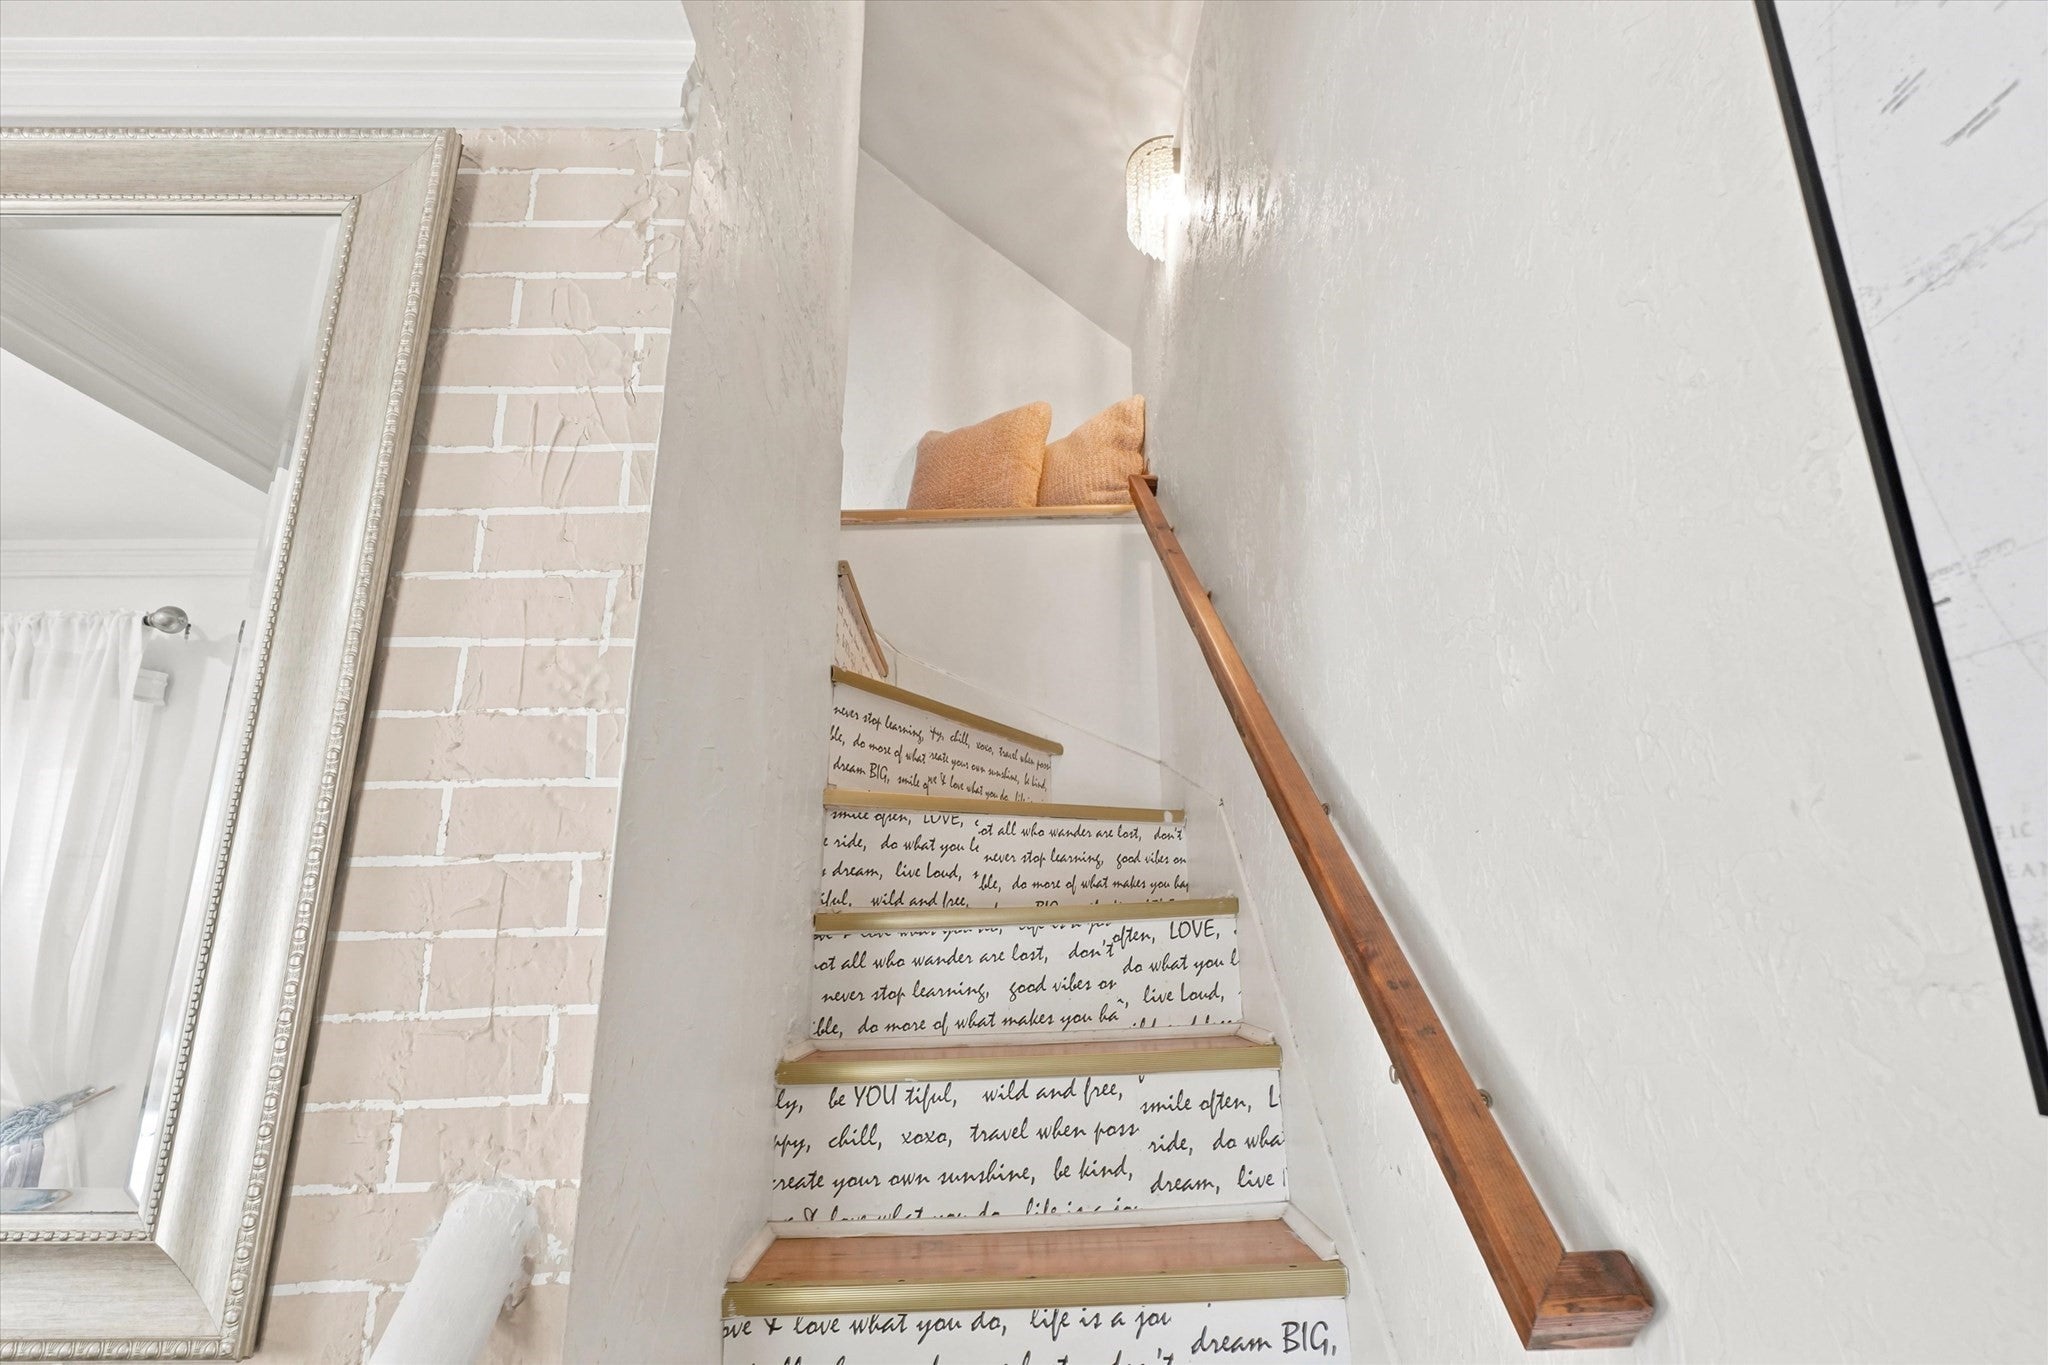 never stop learning, chill, xoxo, travel when poss
ble, do more of what reate your own sunshine, be kind,
dream BIG, smile love what you do,
smile often, LOVE,
ot all who wander are lost, don't
e ride, do what you
never stop learning, good vibes on
dream, live Loud,
ble, do more of what makes you hap
iful, wild and free,
BIG
often, LOVE,
not all who wander are lost, don't
do what you l
never stop learning, good vibes on
live Loud,
ible, do more of what makes you ha
ly, be YOU tiful, wild and free,
smile often, L
ppy, chill, xoxo, travel when poss
ride, do wha
create your own sunshine, be kind,
dream, live
& love what you do, life is a jo
ove & love what you do, life is a jou
dream BIG,
don't
FIC
EAN